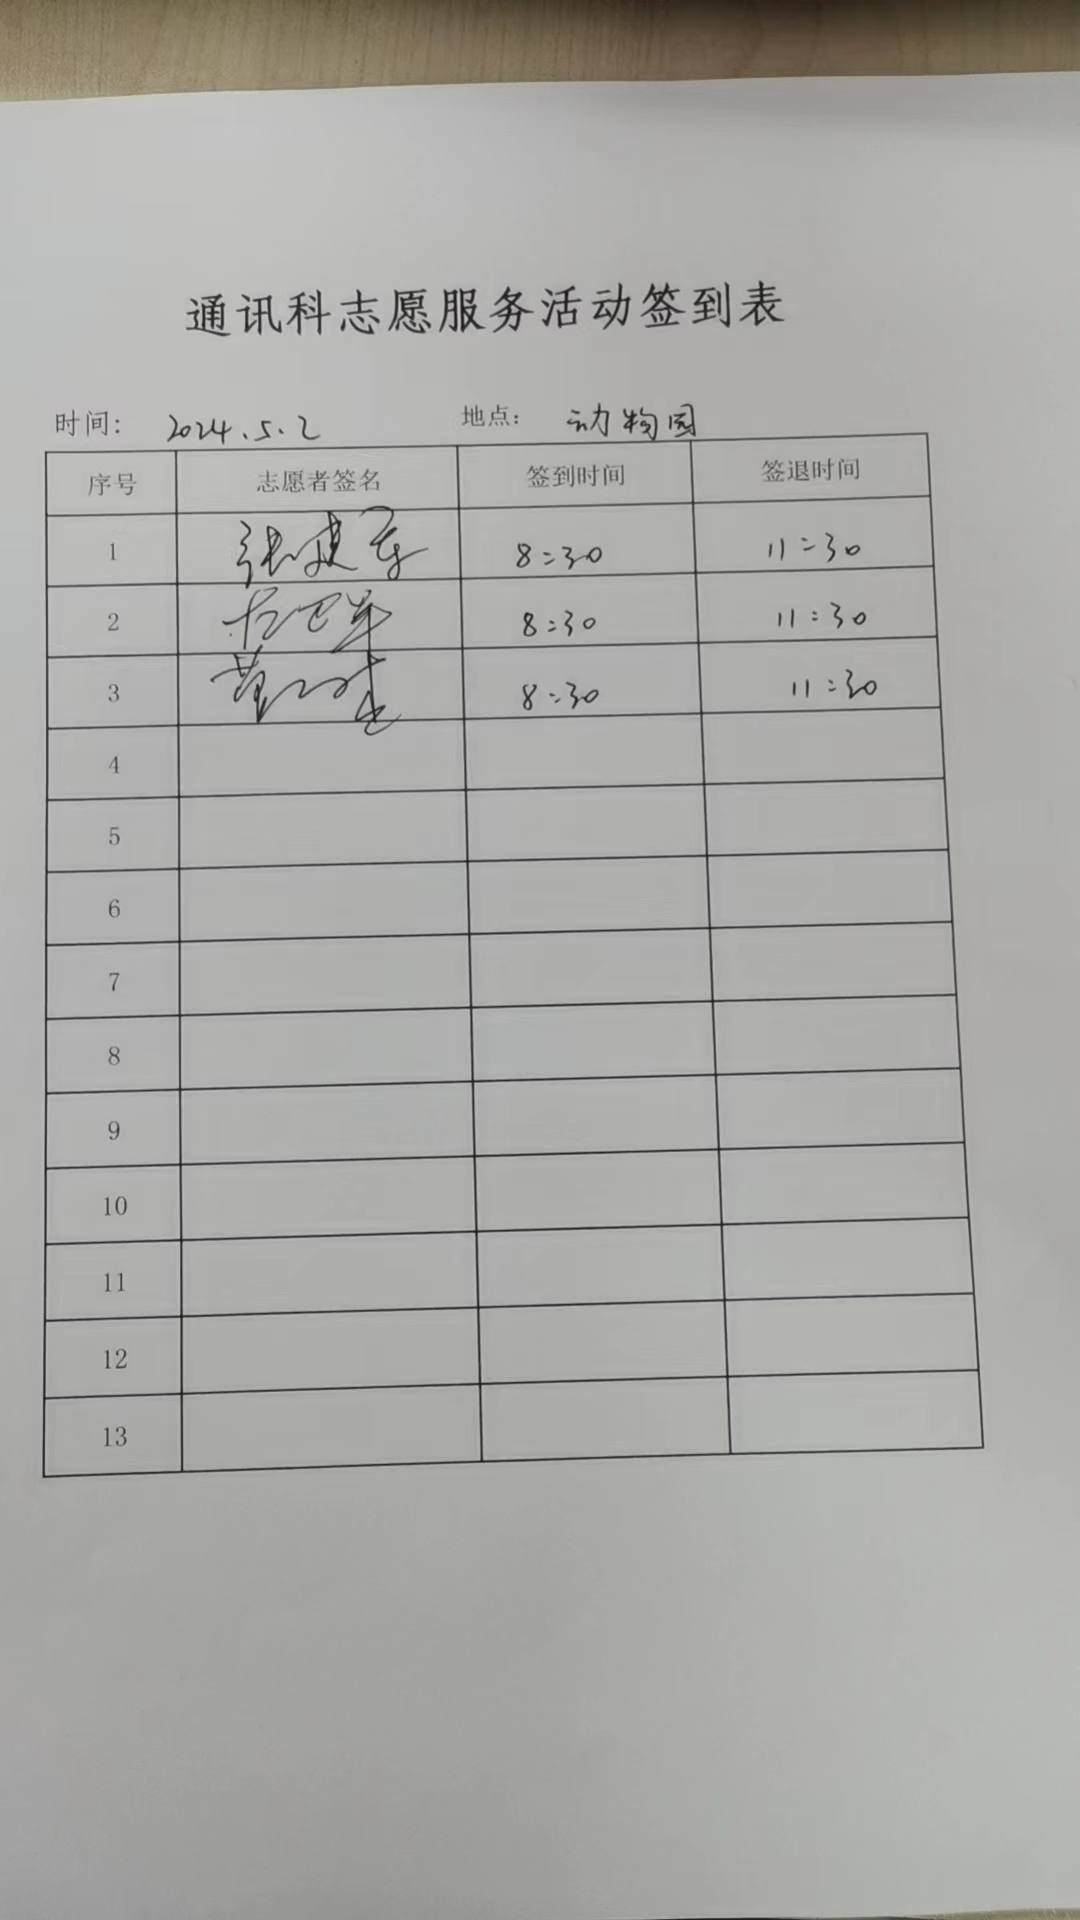 通讯科志愿服务活动签到表
时间: 2024.5.2 地点: 动物园
序号 志愿者签名 签到时间 签退时间
1 张建军 8:30 11:30
2 8:30 11:30
3 8:30 11:30
4
5
6
7
8
9
10
11
12
13